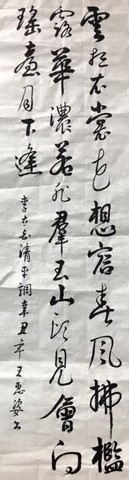 雲想衣裳花想容春風拂檻
露華濃若非羣玉山頭見會向
瑤臺月下逢
李太白清平調辛丑年王惠姿書